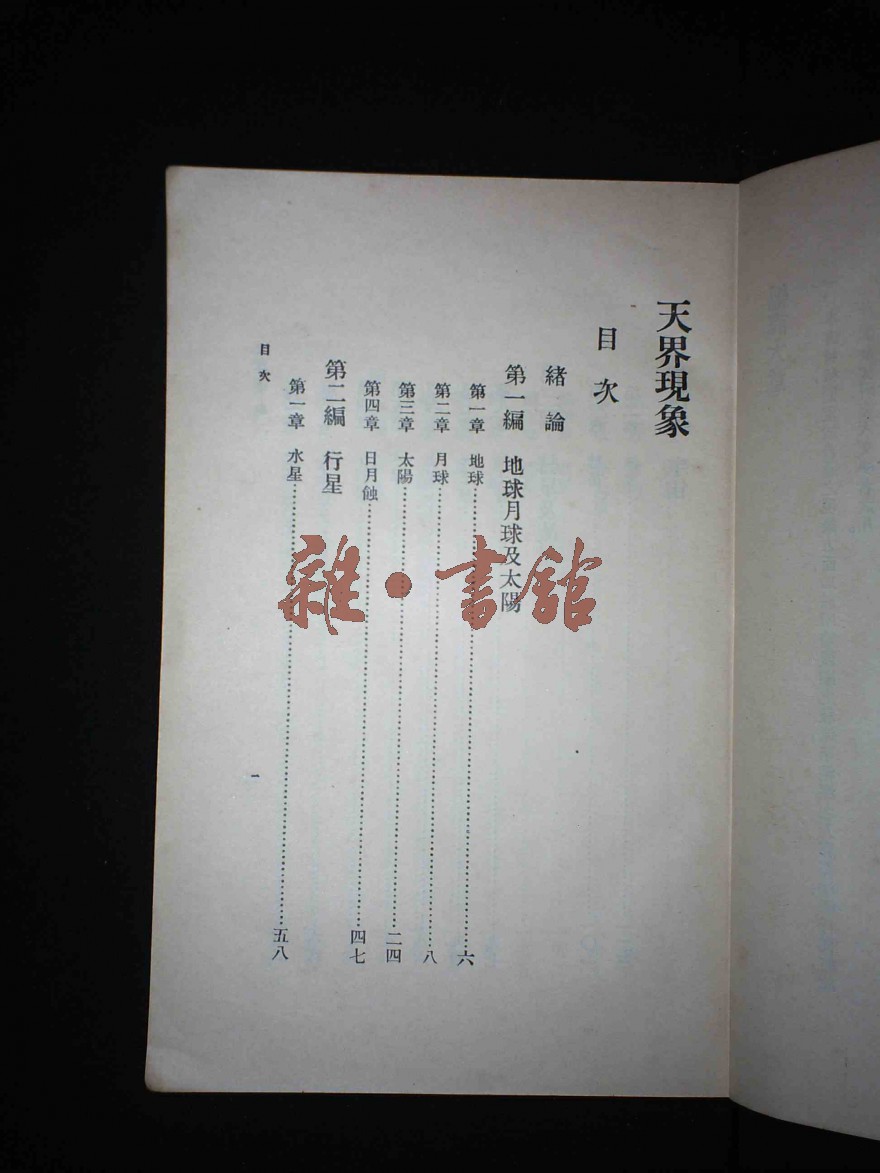 天界現象
目次
緒論
第一編 地球月球及太陽
第一章 地球……六
第二章 月球……八
第三章 太陽……二四
第四章 日月蝕……四七
第二編 行星
第一章 水星……五八
目次
一
雜·書館